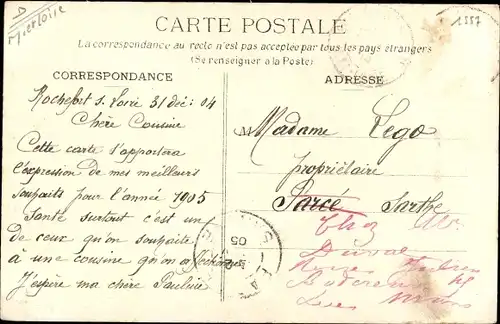 Mtreloire
1557
CARTE POSTALE
La correspondance au recto n'est pas acceptée par tous les pays étrangers
(Se renseigner à la Poste)
CORRESPONDANCE
ADRESSE
Rochefort s. Loire 31 déc. 04
Chère Cousine
Cette carte t'apportera
l'expression de mes meilleurs
souhaits pour l'année 1905
Santé surtout c'est un
de ceux qu'on souhaite
à une cousine qu'on affectionne
J'espère ma chère Pauline
Madame Lego
propriétaire
Sarcé Sarthe
Chez
Rue
Le Mans
05